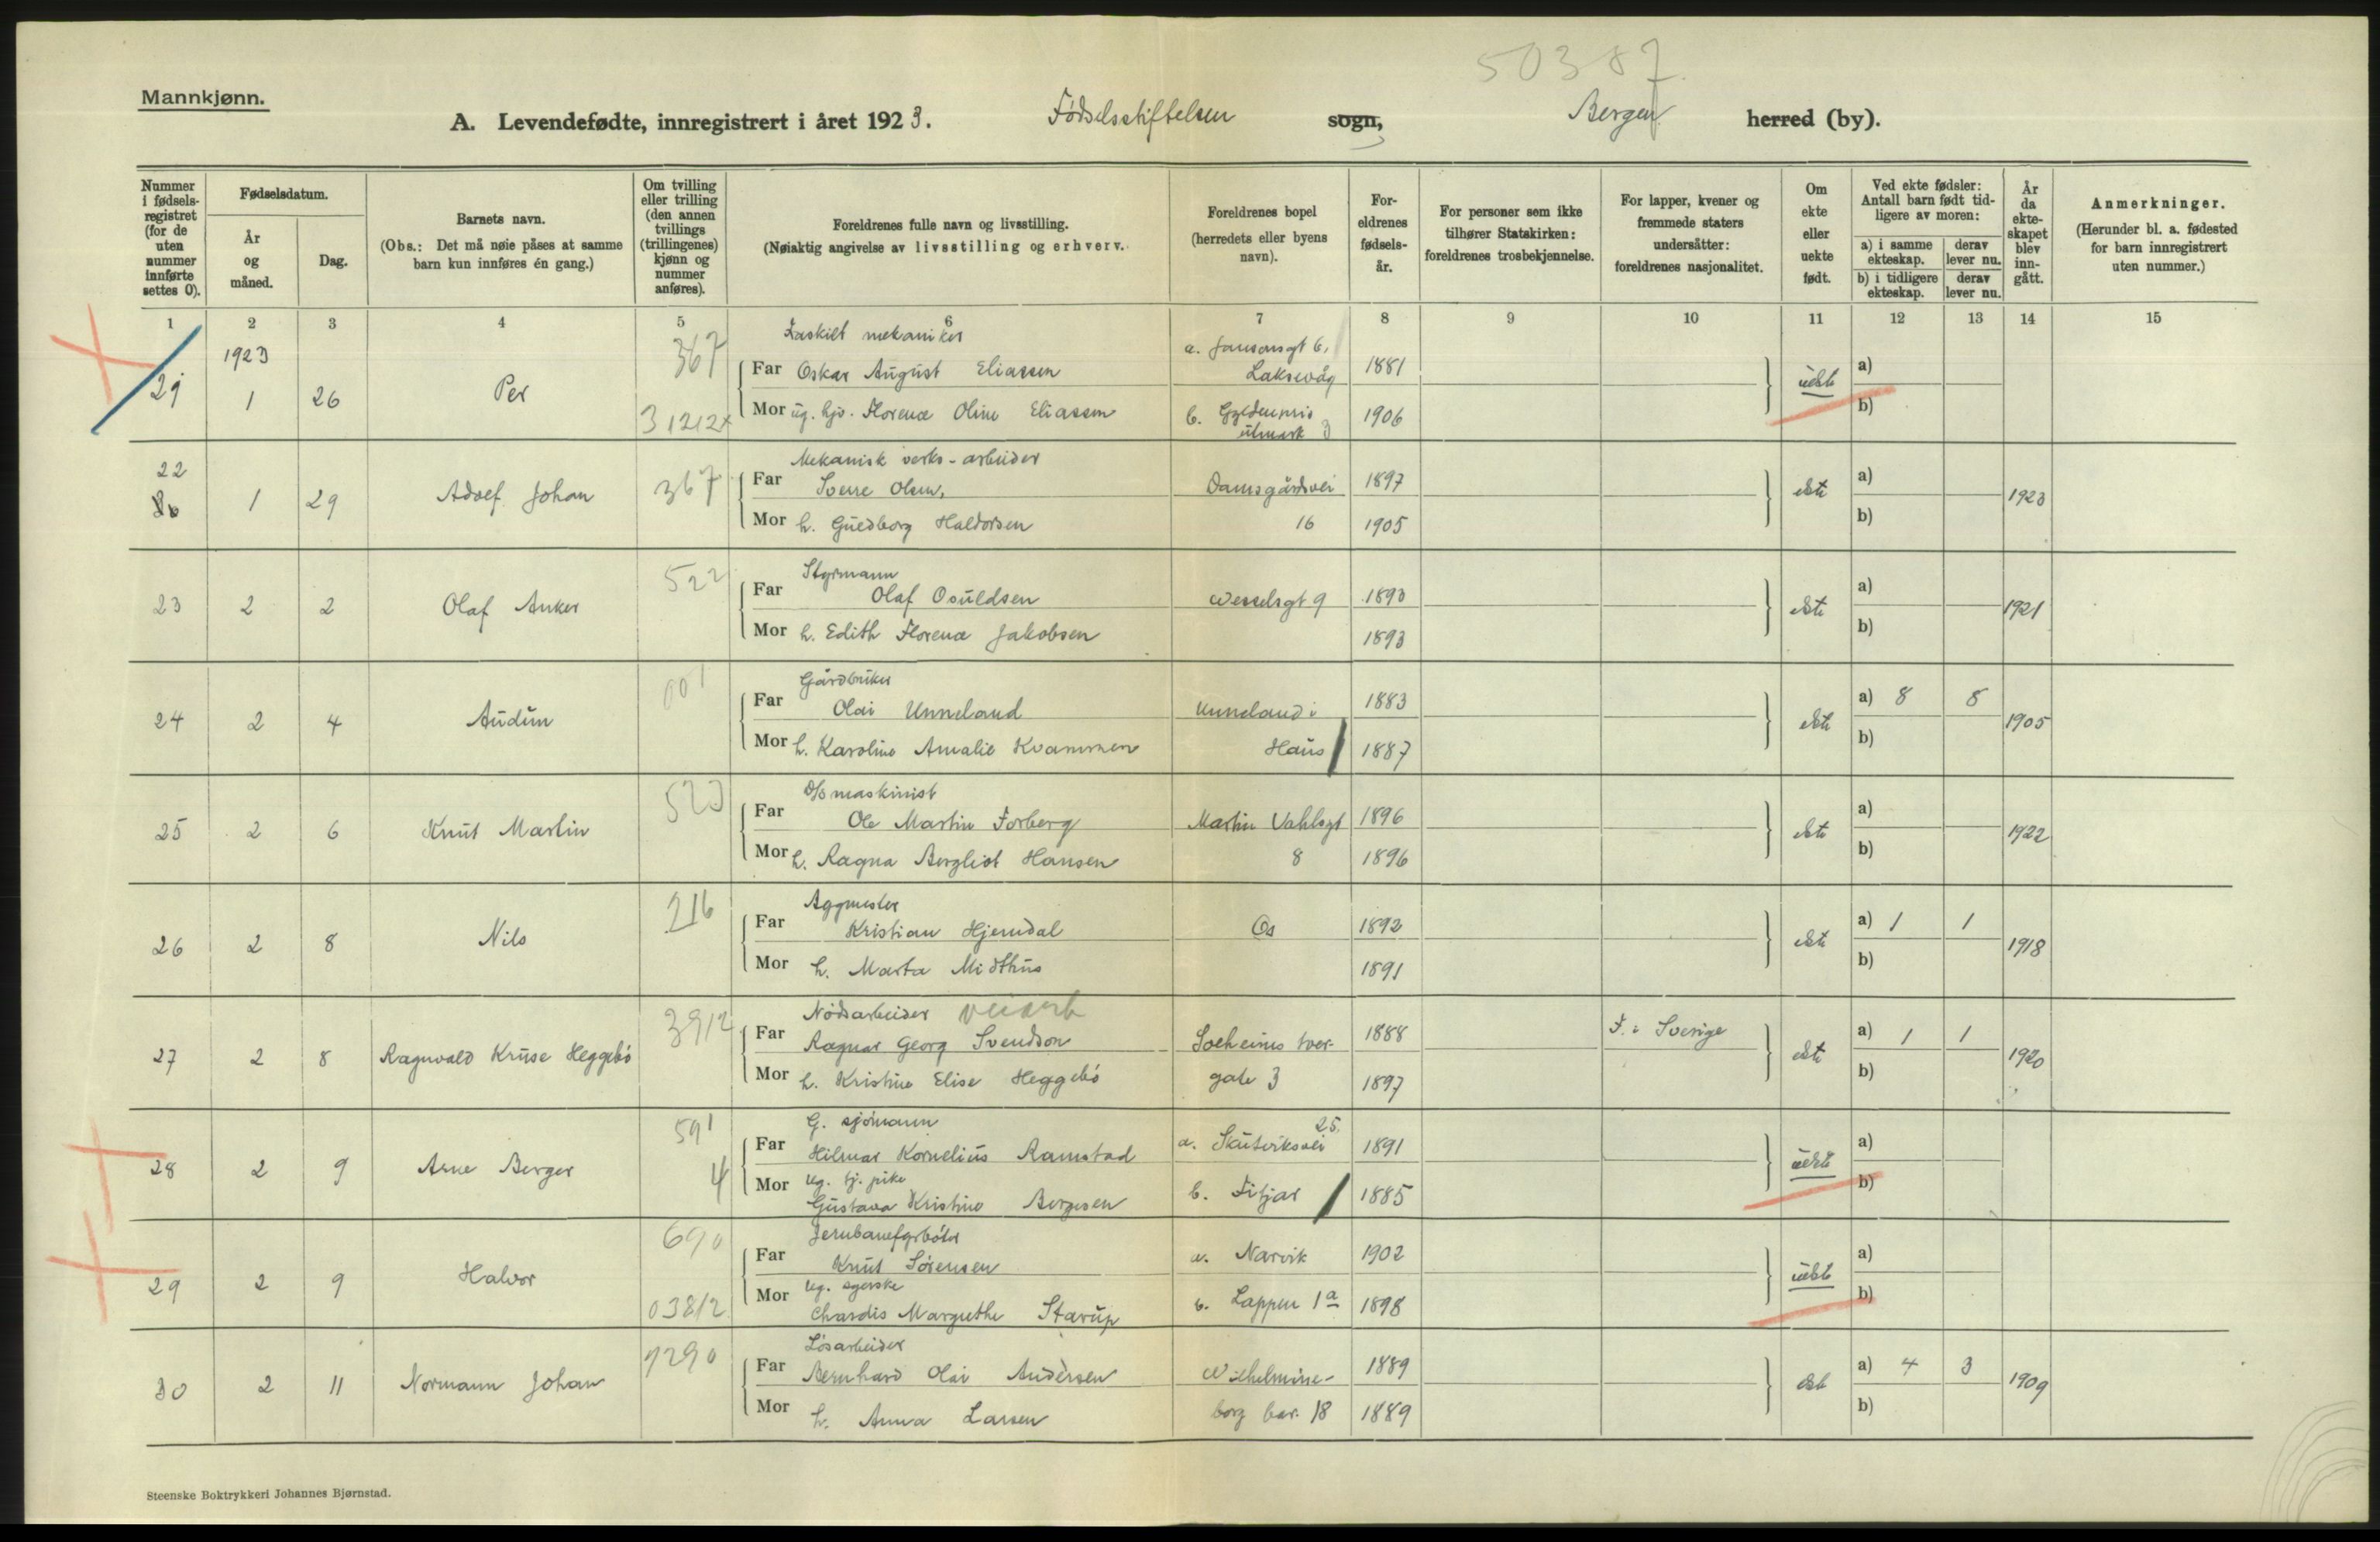 50387.
Mannkjønn.
A. Levendefødte, innregistrert i året 1923. Fødselsstiftelsen sogn, Bergen herred (by).
Nummer i fødselsregistret (for de uten nummer innførte settes 0).
Fødselsdatum.
År og måned.
Dag.
Barnets navn.
(Obs.: Det må nøie påses at samme barn kun innføres én gang.)
Om tvilling eller trilling (den annen tvillings (trillingenes) kjønn og nummer anføres).
Foreldrenes fulle navn og livsstilling.
(Nøiaktig angivelse av livsstilling og erhverv.)
Foreldrenes bopel (herredets eller byens navn).
Foreldrenes fødselsår.
For personer som ikke tilhører Statskirken: foreldrenes trosbekjennelse.
For lapper, kvener og fremmede staters undersåtter: foreldrenes nasjonalitet.
Om ekte eller uekte født.
Ved ekte fødsler: Antall barn født tidligere av moren:
a) i samme ekteskap. derav lever nu.
b) i tidligere ekteskap. derav lever nu.
År da ekteskapet blev inngått.
Anmerkninger.
(Herunder bl. a. fødested for barn innregistrert uten nummer.)
1 2 3 4 5 6 7 8 9 10 11 12 13 14 15
1923
367
Fraskilt mekaniker
a. Jansonsgt 6,
21 1 26 Per Far Oskar August Eliassen Laksevåg 1881 uekte a)
31212x Mor ug. hjv. Florence Oline Eliassen b. Gyldenpris utmark 3 1906 b)
Mekanisk verks-arbeider
22 1 29 Adolf Johan 367 Far Sverre Olsen, Damsgårdsvei 1897 ekte a) 1923
Mor h. Gudborg Haldorsen 16 1905 b)
Styrmann
23 2 2 Olaf Anker 522 Far Olaf Osuldsen Wesselsgt 9 1893 ekte a) 1921
Mor h. Edith Florence Jakobsen 1893 b)
Gårdbruker
24 2 4 Audun 001 Far Olai Unneland Unneland i 1883 ekte a) 8 8 1905
Mor h. Karoline Amalie Kvammen Haus 1887 b)
D/S maskinist
25 2 6 Knut Martin 523 Far Ole Martin Forberg Martin Vahlsgt 1896 ekte a) 1922
Mor h. Ragna Bergliot Hansen 8 1896 b)
Byggmester
26 2 8 Nils 216 Far Kristian Hjemdal Os 1892 ekte a) 1 1 1918
Mor h. Marta Midthus 1891 b)
Nødsarbeider veiarb
27 2 8 Ragnvald Kruse Heggebö 3912 Far Ragnar Georg Svendson Solheims tver- 1888 F. i Sverige ekte a) 1 1 1920
Mor h. Kristine Elise Heggebö gate 3 1897 b)
G. sjömann 25.
28 2 9 Arne Berger 591 Far Hilmar Kornelius Ramstad a. Skuteviksvei 1891 uekte a)
4 Mor ug. tj. pike
Gustava Kristine Bergesen b. Fitjar 1885 b)
Jernbanefyrböter
29 2 9 Halvor 690 Far Knut Sörensen a. Narvik 1902 uekte a)
03812 Mor ug. syerske
Margrethe Starup b. Lappen 1a 1898 b)
Lösarbeider
30 2 11 Normann Johan 7290 Far Bernhard Olai Andersen Wilhelmine- 1889 ekte a) 4 3 1909
Mor h. Anna Larsen borg bar. 18 1889 b)
Steenske Boktrykkeri Johannes Bjørnstad.